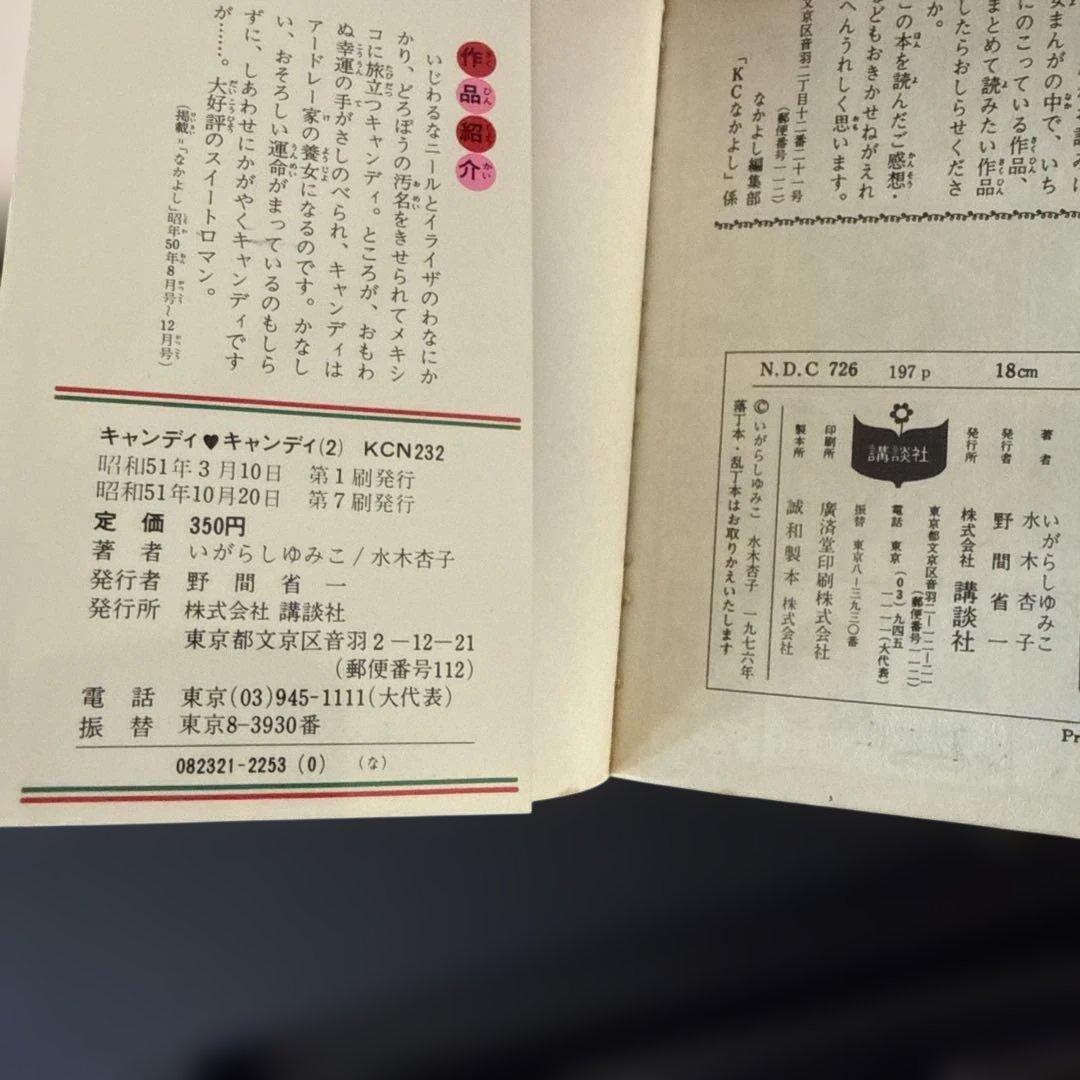 作品紹介
いじわるなニールとイライザのわなにか
かり、どろぼうの汚名をきせられてメキシ
コに旅立つキャンディ。ところが、おもわ
ぬ幸運の手がさしのべられ、キャンディは
アードレー家の養女になるのです。かなし
い、おそろしい運命がまっているのもしら
ずに、しあわせにかがやくキャンディです
が……。大好評のスイートロマン。
(掲載=「なかよし」昭年50年8月号~12月号)
キャンディ♥キャンディ(2) KCN232
昭和51年3月10日 第1刷発行
昭和51年10月20日 第7刷発行
定価 350円
著者 いがらしゆみこ/水木杏子
発行者 野間省一
発行所 株式会社 講談社
東京都文京区音羽2-12-21
(郵便番号112)
電話 東京(03)945-1111(大代表)
振替 東京8-3930番
082321-2253 (0) (な)
女まんがの中で、いち
にのこっている作品、
まとめて読みたい作品
したらおしらせくださ
か。
この本を読んだご感想・
どもおきかせねがえれ
へんうれしく思います。
文京区音羽二丁目十二番二十一号
(郵便番号一一二)
なかよし編集部
「KCなかよし」係
N.D.C 726 197p 18cm
著者 いがらしゆみこ
水木杏子
発行者 野間省一
発行所 株式会社 講談社
東京都文京区音羽二-一二-二一
(郵便番号一一二)
電話 東京(03)九四五
一一一一(大代表)
振替 東京八-三九三〇番
講談社
印刷所 廣済堂印刷株式会社
製本所 誠和製本株式会社
©いがらしゆみこ 水木杏子 一九七六年
落丁本・乱丁本はお取りかえいたします